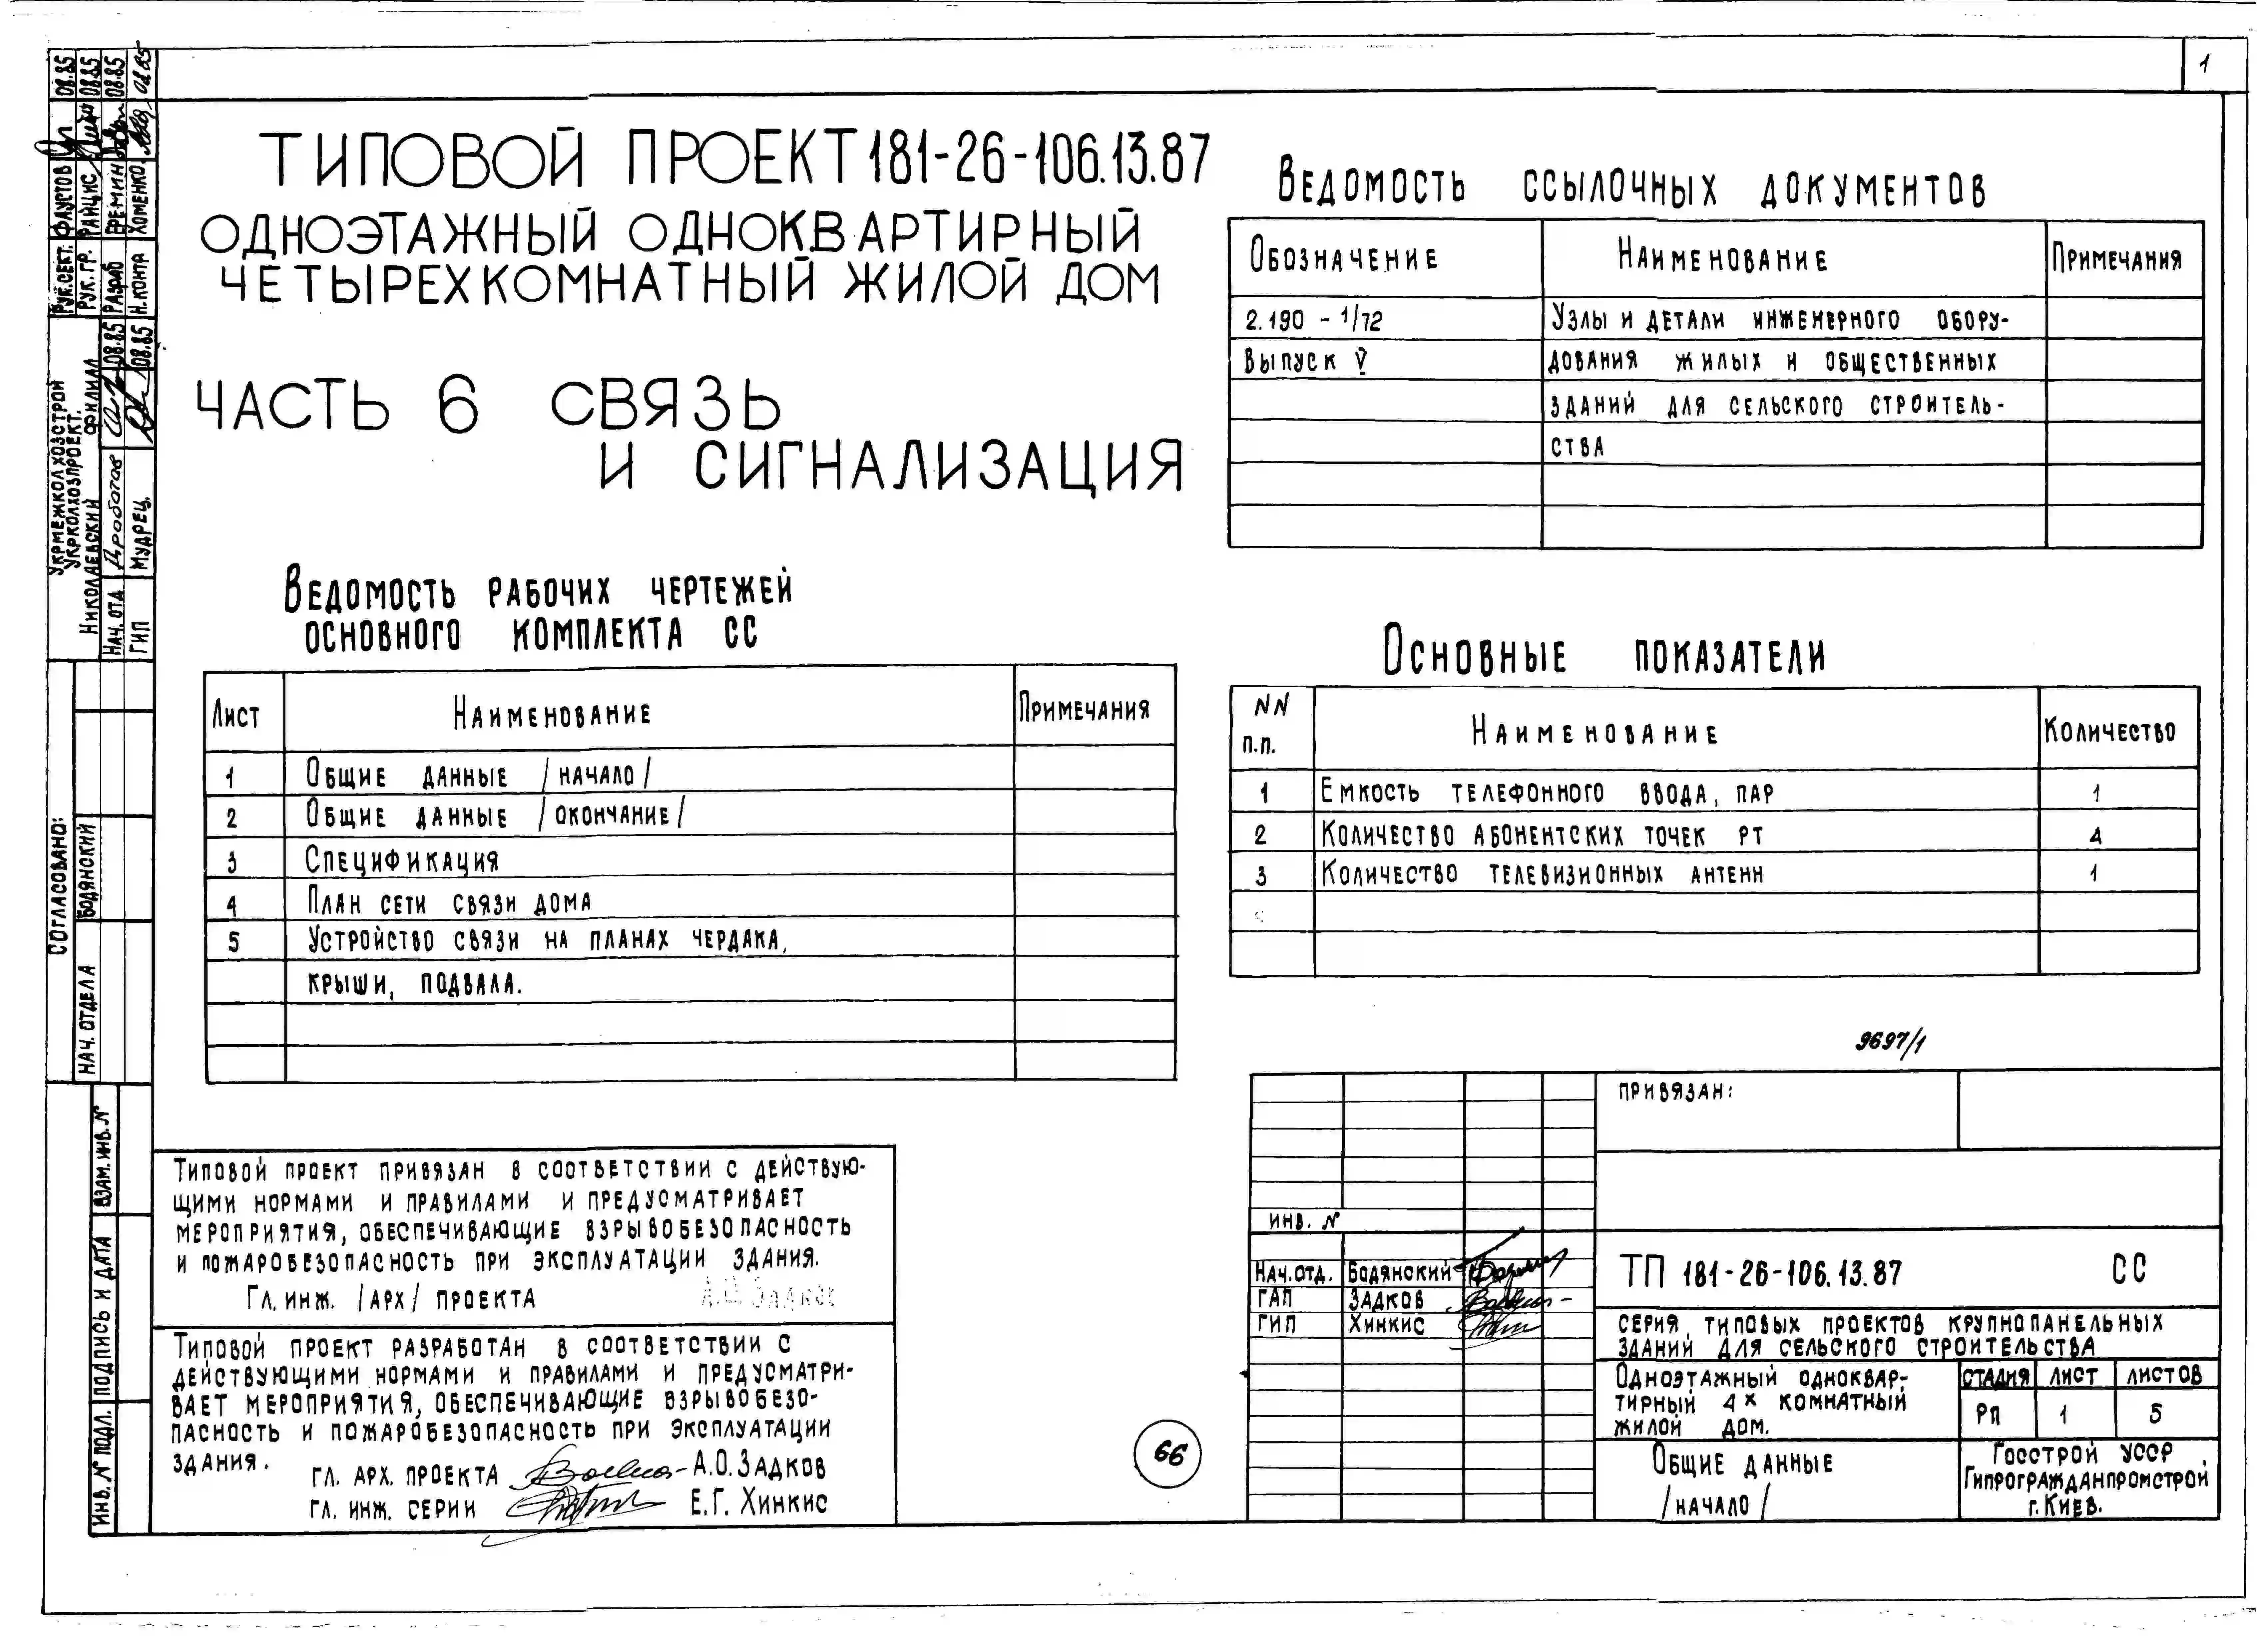 1
ТИПОВОЙ ПРОЕКТ 181-26-106.13.87
ОДНОЭТАЖНЫЙ ОДНОКВАРТИРНЫЙ
ЧЕТЫРЕХКОМНАТНЫЙ ЖИЛОЙ ДОМ
ЧАСТЬ 6 СВЯЗЬ
И СИГНАЛИЗАЦИЯ
ВЕДОМОСТЬ РАБОЧИХ ЧЕРТЕЖЕЙ
ОСНОВНОГО КОМПЛЕКТА СС
ЛИСТ НАИМЕНОВАНИЕ ПРИМЕЧАНИЯ
1 ОБЩИЕ ДАННЫЕ /НАЧАЛО/
2 ОБЩИЕ ДАННЫЕ /ОКОНЧАНИЕ/
3 СПЕЦИФИКАЦИЯ
4 ПЛАН СЕТИ СВЯЗИ ДОМА
5 УСТРОЙСТВО СВЯЗИ НА ПЛАНАХ ЧЕРДАКА,
КРЫШИ, ПОДВАЛА.
ВЕДОМОСТЬ ССЫЛОЧНЫХ ДОКУМЕНТОВ
ОБОЗНАЧЕНИЕ НАИМЕНОВАНИЕ ПРИМЕЧАНИЯ
2.190 - 1/72 УЗЛЫ И ДЕТАЛИ ИНЖЕНЕРНОГО ОБОРУ-
ВЫПУСК V ДОВАНИЯ ЖИЛЫХ И ОБЩЕСТВЕННЫХ
ЗДАНИЙ ДЛЯ СЕЛЬСКОГО СТРОИТЕЛЬ-
СТВА
ОСНОВНЫЕ ПОКАЗАТЕЛИ
NN П.П. НАИМЕНОВАНИЕ КОЛИЧЕСТВО
1 ЕМКОСТЬ ТЕЛЕФОННОГО ВВОДА, ПАР 1
2 КОЛИЧЕСТВО АБОНЕНТСКИХ ТОЧЕК РТ 4
3 КОЛИЧЕСТВО ТЕЛЕВИЗИОННЫХ АНТЕНН 1
9697/1
ТИПОВОЙ ПРОЕКТ ПРИВЯЗАН В СООТВЕТСТВИИ С ДЕЙСТВУЮ-
ЩИМИ НОРМАМИ И ПРАВИЛАМИ И ПРЕДУСМАТРИВАЕТ
МЕРОПРИЯТИЯ, ОБЕСПЕЧИВАЮЩИЕ ВЗРЫВОБЕЗОПАСНОСТЬ
И ПОЖАРОБЕЗОПАСНОСТЬ ПРИ ЭКСПЛУАТАЦИИ ЗДАНИЯ.
ГЛ. ИНЖ. /АРХ/ ПРОЕКТА
ТИПОВОЙ ПРОЕКТ РАЗРАБОТАН В СООТВЕТСТВИИ С
ДЕЙСТВУЮЩИМИ НОРМАМИ И ПРАВИЛАМИ И ПРЕДУСМАТРИ-
ВАЕТ МЕРОПРИЯТИЯ, ОБЕСПЕЧИВАЮЩИЕ ВЗРЫВОБЕЗО-
ПАСНОСТЬ И ПОЖАРОБЕЗОПАСНОСТЬ ПРИ ЭКСПЛУАТАЦИИ
ЗДАНИЯ.
ГЛ. АРХ. ПРОЕКТА А.О. ЗАДКОВ
ГЛ. ИНЖ. СЕРИИ Е.Г. ХИНКИС
66
ПРИВЯЗАН:
ИНВ. №
НАЧ. ОТД. БОДЯНСКИЙ
ГАП ЗАДКОВ
ГИП ХИНКИС
ТП 181-26-106.13.87 СС
СЕРИЯ ТИПОВЫХ ПРОЕКТОВ КРУПНОПАНЕЛЬНЫХ
ЗДАНИЙ ДЛЯ СЕЛЬСКОГО СТРОИТЕЛЬСТВА
ОДНОЭТАЖНЫЙ ОДНОКВАР-
ТИРНЫЙ 4Х КОМНАТНЫЙ
ЖИЛОЙ ДОМ.
СТАДИЯ ЛИСТ ЛИСТОВ
РП 1 5
ОБЩИЕ ДАННЫЕ
/НАЧАЛО/
ГОССТРОЙ УССР
ГИПРОГРАЖДАНПРОМСТРОЙ
Г. КИЕВ.
РУК. СЕКТ. ФАУСТОВ 08.85
РУК. ГР. РАЙЦИС 08.85
РАЗРАБ ЕРЕМИН 08.85
Н. КОНТР ХОМЕНКО
УКРМЕЖКОЛХОЗСТРОЙ
УКРКОЛХОЗПРОЕКТ.
НИКОЛАЕВСКИЙ ФИЛИАЛ
НАЧ. ОТД 08.85
ГИП МУДРЕЦ. 08.85
СОГЛАСОВАНО:
НАЧ. ОТДЕЛА БОДЯНСКИЙ
ВЗАМ. ИНВ. №
ПОДПИСЬ И ДАТА
ИНВ. № ПОДЛ.